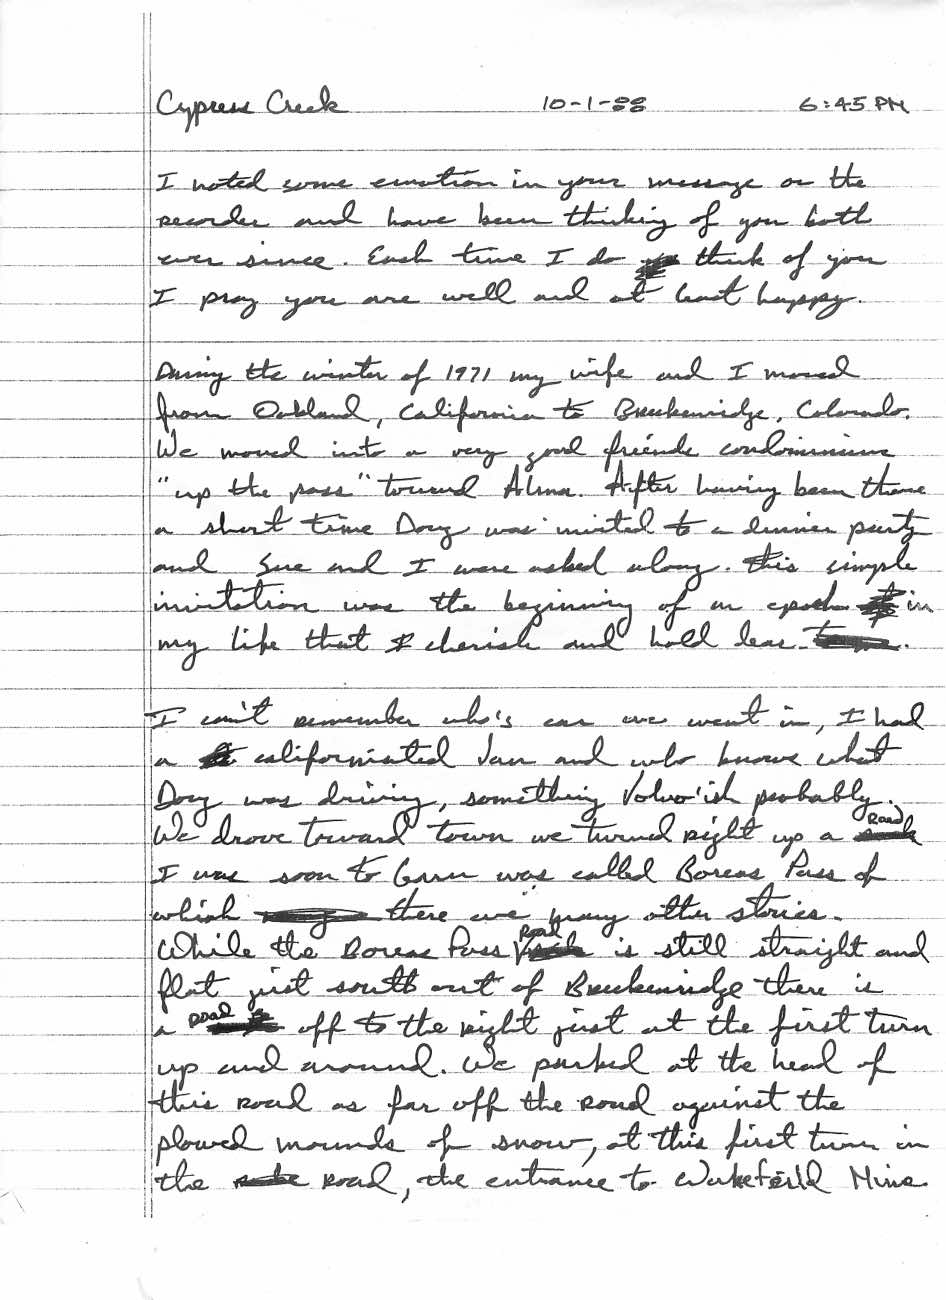 Cypress Creek 10-1-88 6:45 PM
I noted some emotion in your message on the
recorder and have been thinking of you both
ever since. Each time I do think of you
I pray you are well and at least happy.
During the winter of 1971 my wife and I moved
from Oakland, California to Breckenridge, Colorado.
We moved into a very good friends condominium
"up the pass" toward Alma. After having been there
a short time Doug was invited to a dinner party
and Sue and I were asked along. This simple
invitation was the beginning of an epoch in
my life that I cherish and hold dear.
I can't remember who's car we went in, I had
a californiated van and who knows what
Doug was driving, something Volvo'ish probably.
We drove toward town we turned right up a Road
I was soon to learn was called Boreas Pass of
which there are many other stories.
While the Boreas Pass Road is still straight and
flat just south out of Breckenridge there is
a road off to the right just at the first turn
up and around. We parked at the head of
this road as far off the road against the
plowed mounds of snow, at this first turn in
the road, the entrance to Wakefeild Mine